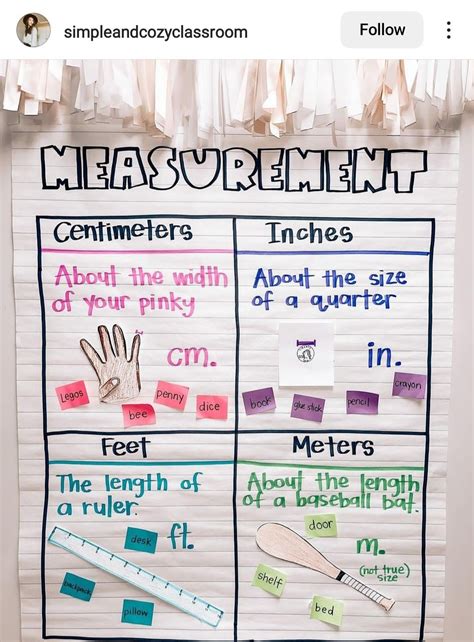 simpleandcozyclassroom
Follow
MEASUREMENT
Centimeters
About the width
of your pinky
cm.
Legos
bee
penny
dice
Inches
About the size
of a quarter
in.
book
glue stick
pencil
crayon
Feet
The length of
a ruler.
ft.
desk
backpack
pillow
Meters
About the length
of a baseball bat.
door
m.
(not true)
size
shelf
bed